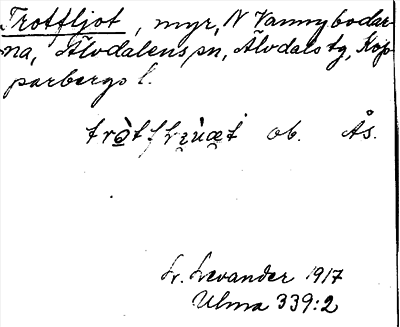 Trotfljot, myr, N Vannybodar-
na, Älvdalens sn, Älvdals tg, Kop-
parbergs l.
ob. Ås.
Lr. Levander 1917
Ulma 339:2